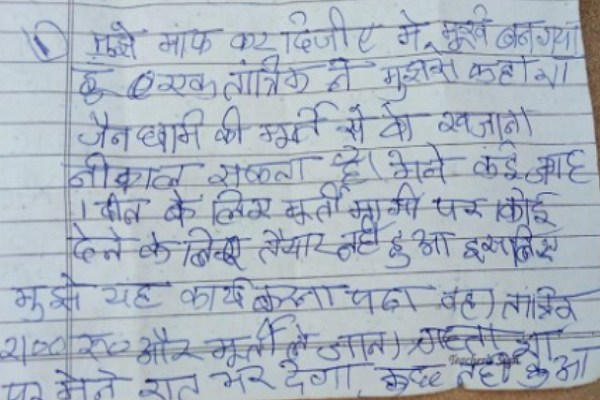 ① मुझे माफ कर दिजीए मे मूर्ख बन गया
हू एक तांत्रिक ने मुझसे कहा था
जैन धामि की मूर्ती से वो खजाना
नीकाल सकता है। मेने कई जगह
1 दीन के लिए मूर्ती मांगी पर कोई
देने के लिए तैयार नही हुआ इसलिए
मुझे यह कार्य करना पडा वह तांत्रिक
रु० और मूर्ती ले जाना चाहता था
पर मेने रात भर देखा, कुछ नही हुआ
Teacher's Sign